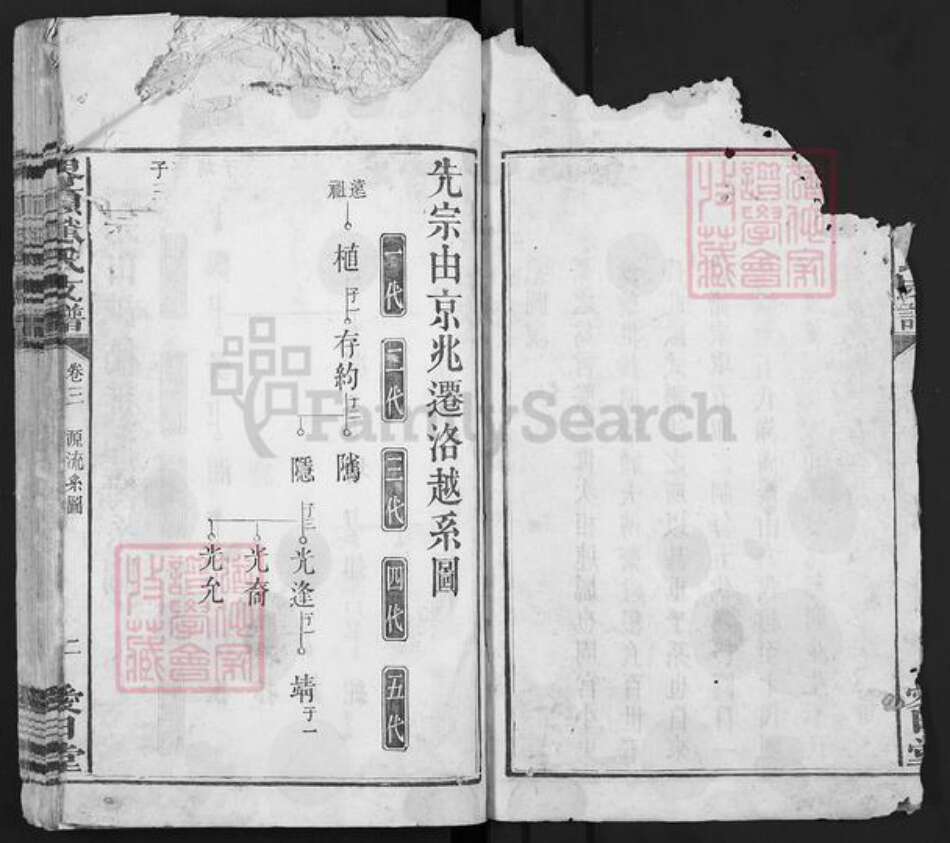 先宗由京兆遷洛越系圖
一代
二代
三代
四代
五代
遠祖
植
子一
存約
子二
隲
隱
子三
光逢
子一
靖
子一
光裔
光允
子三
氏支譜
卷三
源流系圖
二
愛日堂
FamilySearch
譜
愛日堂
譜學會
收藏
譜學會
收藏